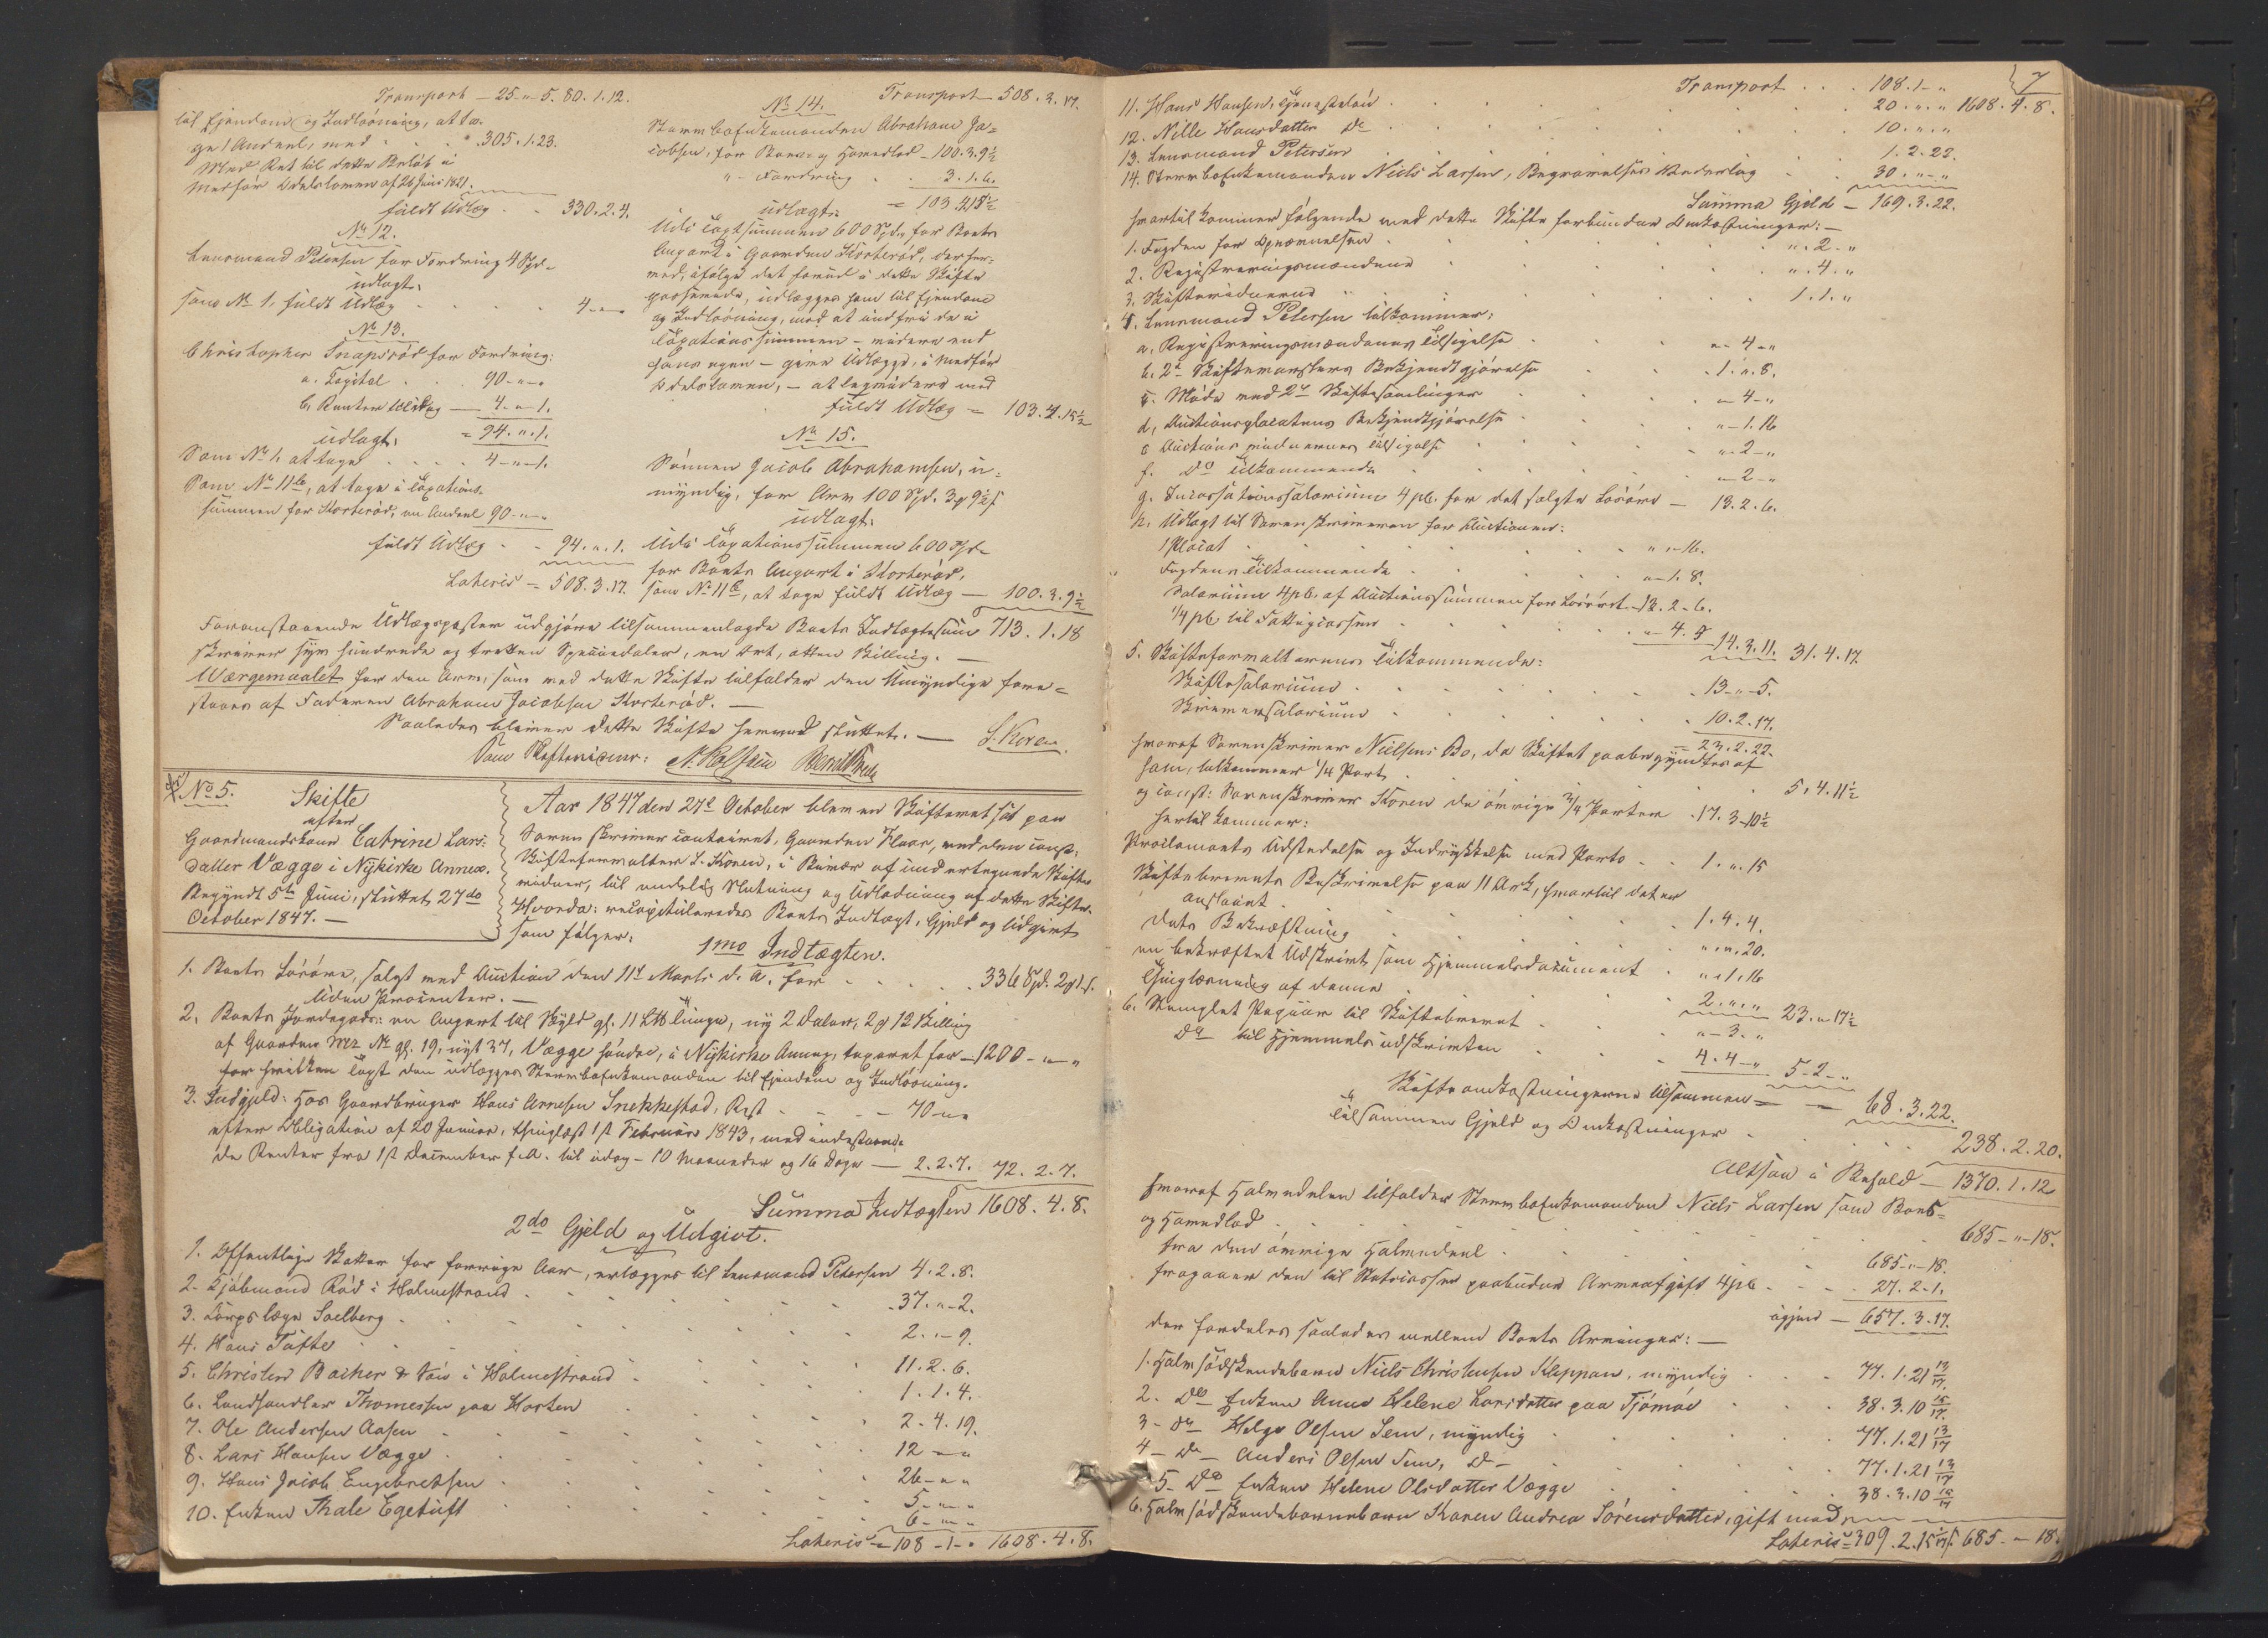 Transport - 25 - " - 5. 80. 1. 12.
til Ejendom og Indløsning, at ta-
ge 1 Andeel, med . . 305. 1. 23.
Med Ret til dette Beløb i
Medfør Odelsloven af 26 Juni 1821.
fuldt Udlæg . . 330. 2. 4.
No 12.
Lensmand Petersen for Fordring 4 Spd.
udlagt:
som No 1, fuldt Udlæg . . . 4 - " - "
No 13.
Christopher Snapsrød for Fordring:
a. Capital . . 90 - " - "
b. Renter 4. " 1.
= 94. " . 1.
udlagt:
Som No 1. at tage . . . 4 - " - 1.
Som No 11 , at tage i Taxations-
summen for Korterød, en Andeel 90 - " - "
fuldt Udlæg . . 94. " . 1.
Lateris = 508. 3. 17.
No 14. Transport - 508. 3. 17.
Stervboenkemanden Abraham Ja-
cobsen, for Boes- og Hovedlod - 100. 3. 9½
" - Fordring . . 3. 1. 6.
= 103. 4. 15½
udlagt:
Udi Taxtsummen 600 Spd. for Boets
Anpart i Gaarden Korterød, der her-
med, ifølge det forud i dette Skifte
passerede, udlægges ham til Ejendom
og Indløsning, mod at indfrie de i
Taxationssummen - videre end
hans egen - givne Udlægge, i Medfør
Odelsloven, - at legitimeres med
fuldt Udlæg - 103. 4. 15½
No 15.
Sønnen Jacob Abrahamsen, u-
myndig, for Arv 100 Spd. 3 ort 9½ s
udlagt:
Udi Taxationssummen 600 Spd.
for Boets Anpart i Korterød,
som No 11 , at tage fuldt Udlæg - 100. 3. 9½
Foranstaaende Udlægsposter udgjøre tilsammenlagde Boets Indtægtssum 713. 1. 18
skriver syv hundrede og tretten Speciedaler, en Ort, atten Skilling. -
Værgemaalet for den Arv, som ved dette Skifte tilfalder den Umyndige fore-
staaes af Faderen Abraham Jacobsen Korterød. -
Saaledes bliver dette Skifte hermed sluttet. - S. Koren.
Som Skifteviduer: N. Holstein
No 5. Skifte
efter
Gaardmandskone Catrine Lars-
datter Vægge i Nykirke Annex.
Begyndt 5te Juni, sluttet 27do
October 1847. -
Aar 1847 den 27e October blev en Skifteret sat paa
Sorenskriver contoiret, Gaarden Klaar, ved den const:
Skifteforvalter S. Koren, i Nærvær af undertegnede Skifte-
viduer, til endelig Slutning og Udlodning af dette Skifte.
Hvorda: recapituleredes Boets Indtægt, Gjeld og Udgivt
som følger:
1mo Indtægten.
1. Boets Løsøre, solgt ved Auction den 11e Marts d. A. for . . . . . 336 Spd. 2 ort 1 s.
Uden Procenter. -
2. Boets Jordegods: en Anpart til Skyld gl. 11 L℔ Tunge, ny 2 Daler, 2 ort 12 Skilling
af Gaarden Mz No gl. 19, nyt 37, Vægge søndre, i Nykirke Annex, taxeret for - 1200 - " - "
for hvilken Taxt den udlægges Stervboenkemanden til Ejendom og Indløsning.
3. Indgjeld: Hos Gaardbruger Hans Arnesen Snekkestad, Rest . . . - 70 - " - "
efter Obligation af 20 Januar, thinglæst 1st Februar 1843, med indestaaende
de Renter fra 1st December f. A. til idag - 10 Maaneder og 16 Dage - 2. 2. 7. 72. 2. 7.
Summa Indtægten 1608. 4. 8.
2do Gjeld og Udgivt.
1. Offentlige Skatter for forrige Aar, erlægges til Lensmand Petersen 4. 2. 8.
2. Kjøbmand Rød i Holmestrand . . . . . 37. " - 2.
3. Corpslæge Soelberg . . . . . 2. " - 9.
4. Hans Tufte . . . . . 11. 2. 6.
5. Christen Backer & Søn i Holmestrand . . . 1. 1. 4.
6. Landhandler Thomessen paa Horten . . . 2. 4. 19.
7. Ole Andersen Aasen . . . . . 12 - " - "
8. Lars Hansen Vægge . . . . . 26 - " - "
9. Hans Jacob Engebretsen . . . . . 5 - " - "
10. Enken Thale Egetuft . . . . . 6 - " - "
Lateris = 108 - 1 - " 1608. 4. 8.
7
Transport . . . 108. 1 - " 1608. 4. 8.
11. Hans Hansen, Tjenesteløn . . . . . 20. " . "
12. Nille Hansdatter Do . . . . . 10. " . "
13. Lensmand Petersen . . . . . 1. 2. 22.
14. Stervboenkemanden Niels Larsen, Begravelses Vederlag . . 30. " - "
Summa Gjeld - 169. 3. 22.
Hvortil kommer følgende med dette Skifte forbundne Omkostninger: -
1. Fogden for Opnævnelsen . . . . . " . 2 - "
2. Registreringsmændene . . . . . " . 4. "
3. Skifteviduerne . . . . . 1. 1. "
4. Lensmand Petersen tilkommer:
a, Registreringsmændenes Tilsigelse . . . " - 4 - "
b. 2de Skiftevarslers Bekjendtgjørelse . . . 1. " . 8.
c. Møde ved 2de Skiftesamlinger . . . " - 4 - "
d, Auctionsplacatens Bekjendtgjørelse . . . " - 1. 16
e Auctions viduernes Tilsigelse . . . " . 2 - "
f. Do Tilkommende . . . " - 2 - "
g. Incassationssalarium 4 pC. for det solgte Løsøre - 13. 2. 6.
h. Udlagt til Sorenskriveren for Auctionen:
1 Placat . . . " . " - 16.
Fogdens Tilkommende . . . " - 1. 8.
Salarium 4 pC. af Auctionssummen for Løsøret - 13. 2 - 6.
1/4 pC. til Fattigcassen . . . " - 4. 5 14. 3. 11. 31. 4. 17.
5. Skifteforvalterens Tilkommende:
Skiftesalarium . . . . . 13 - " - 5.
Skriversalarium . . . . . 10. 2. 17.
= 23. 2. 22.
Hvoraf Sorenskriver Nielsens Bo, da Skiftet paabegyndtes af
ham, tilkommer 1/4 Part . . . . . 5. 4. 11½
og const: Sorenskriver Koren de øvrige 3/4 Parter . 17. 3 - 10½
hertil kommer:
Proclamets Udstedelse og Indrykkelse med Porto - . 1. " . 15
Skiftebrevets Beskrivelse paa 11 Ark, hvortil det er
anslaaet . . . . . 1. 4. 4.
dets Bekræftning . . . . . " . " . 20.
en bekræftet Udskrivt som Hjemmelsdocument . " . 1. 16
Thinglæsning af denne . . . . 2. " . " 23. " 17½
6. Stemplet Papiir til Skiftebrevet . . . " - 3. "
Do til Hjemmelsudskrivten . . . 4. 4 - " 5 - 2 - "
Skifteomkostningerne tilsammen = - 68. 3. 22.
Tilsammen Gjeld og Omkostninger . . . 238. 2. 20.
Altsaa i Behold - 1370. 1. 12
Hvoraf Halvedelen tilfalder Stervboenkemanden Niels Larsen som Boes-
og Hovedlod . . . . . 685 - " - 18.
Fra den øvrige Halvedeel . . . 685 - " - 18.
fragaaer den til Statscassen paabudne Arveafgift 4 pC. . . . 27. 2 - 1.
igjen - 657. 3. 17.
der fordeles saaledes mellem Boets Arvinger: -
1. Halvsødskendebarn Niels Christensen Kleppan, myndig . . . 77. 1. 21 13/17
2. Do Enken Anne Helene Larsdatter paa Tjømøe . . 38. 3. 10 15/17
3 - Do Helge Olsen Sem, myndig . . . 77. 1. 21 13/17
4 - Do Anders Olsen Sem, Do - . . . 77. 1. 21 13/17
5 - Do Enken Helene Olsdatter Vægge . . . 38. 3. 10 15/17
6. Halvsødskendebarnebarn Karen Andrea Sørensdatter, gift med
Lateris = 309. 2. 15 685 - " - 18.